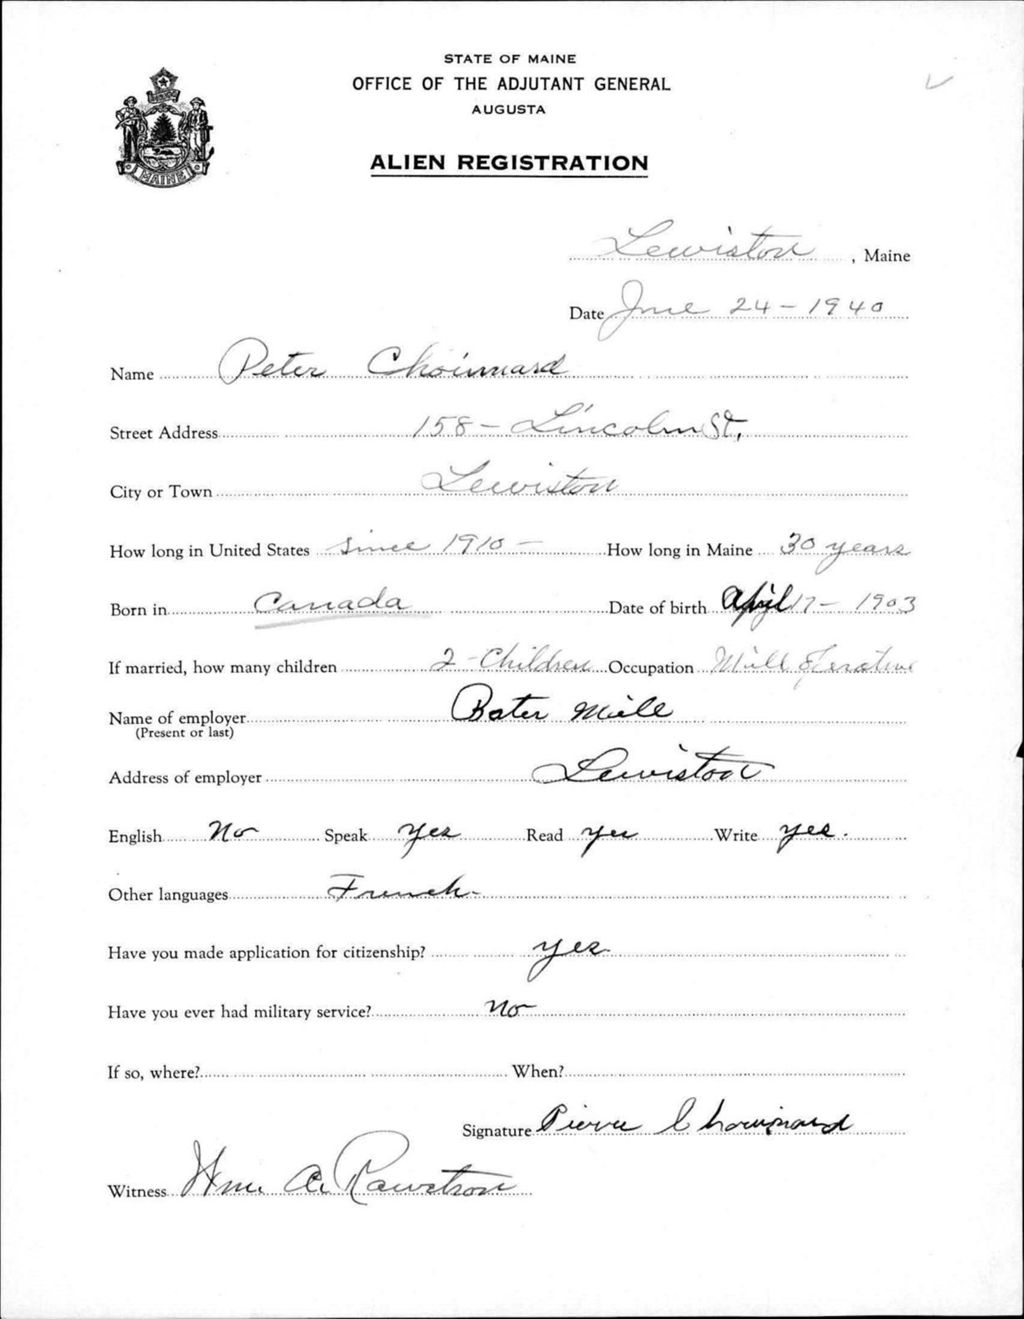 STATE OF MAINE
OFFICE OF THE ADJUTANT GENERAL
AUGUSTA
ALIEN REGISTRATION
MAINE
Lewiston, Maine
Date June 24-1940
Name Peter Chouinard
Street Address 158 - Lincoln St.
City or Town Lewiston
How long in United States since 1910 - How long in Maine 30 years
Born in Canada Date of birth April 17 - 1903
If married, how many children 2 - Children Occupation Mill Operative
Name of employer Bates Mill
(Present or last)
Address of employer Lewiston
English No Speak Yes Read yes Write yes.
Other languages French -
Have you made application for citizenship? yes
Have you ever had military service? No
If so, where? When?
Signature Pierre Chouinard
Witness Wm. A. Rawstron